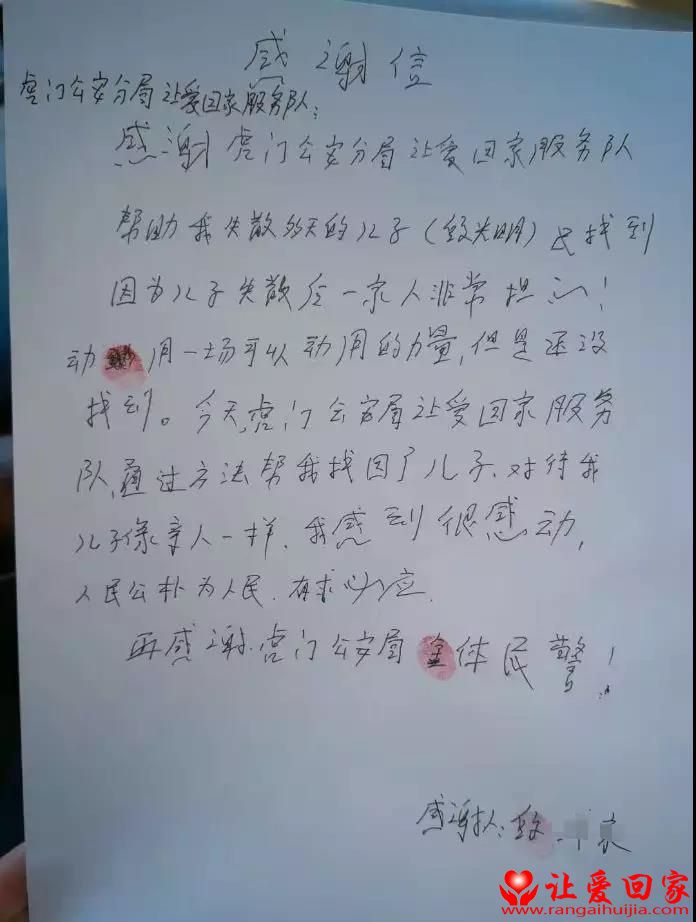 感谢信
虎门公安分局让爱回家服务队:
感谢虎门公安分局让爱回家服务队
帮助我失散多天的儿子(失明)找到
因为儿子失散后一家人非常担心!
动用一场可以动用的力量,但是还没
找到。今天,虎门公安局让爱回家服务
队,通过方法帮我找回了儿子、对待我
儿子像亲人一样.我感到很感动,
人民公朴为人民.有求必应.
再感谢.虎门公安局全体民警!
感谢人:家
让爱回家
www.rangaihuijia.com